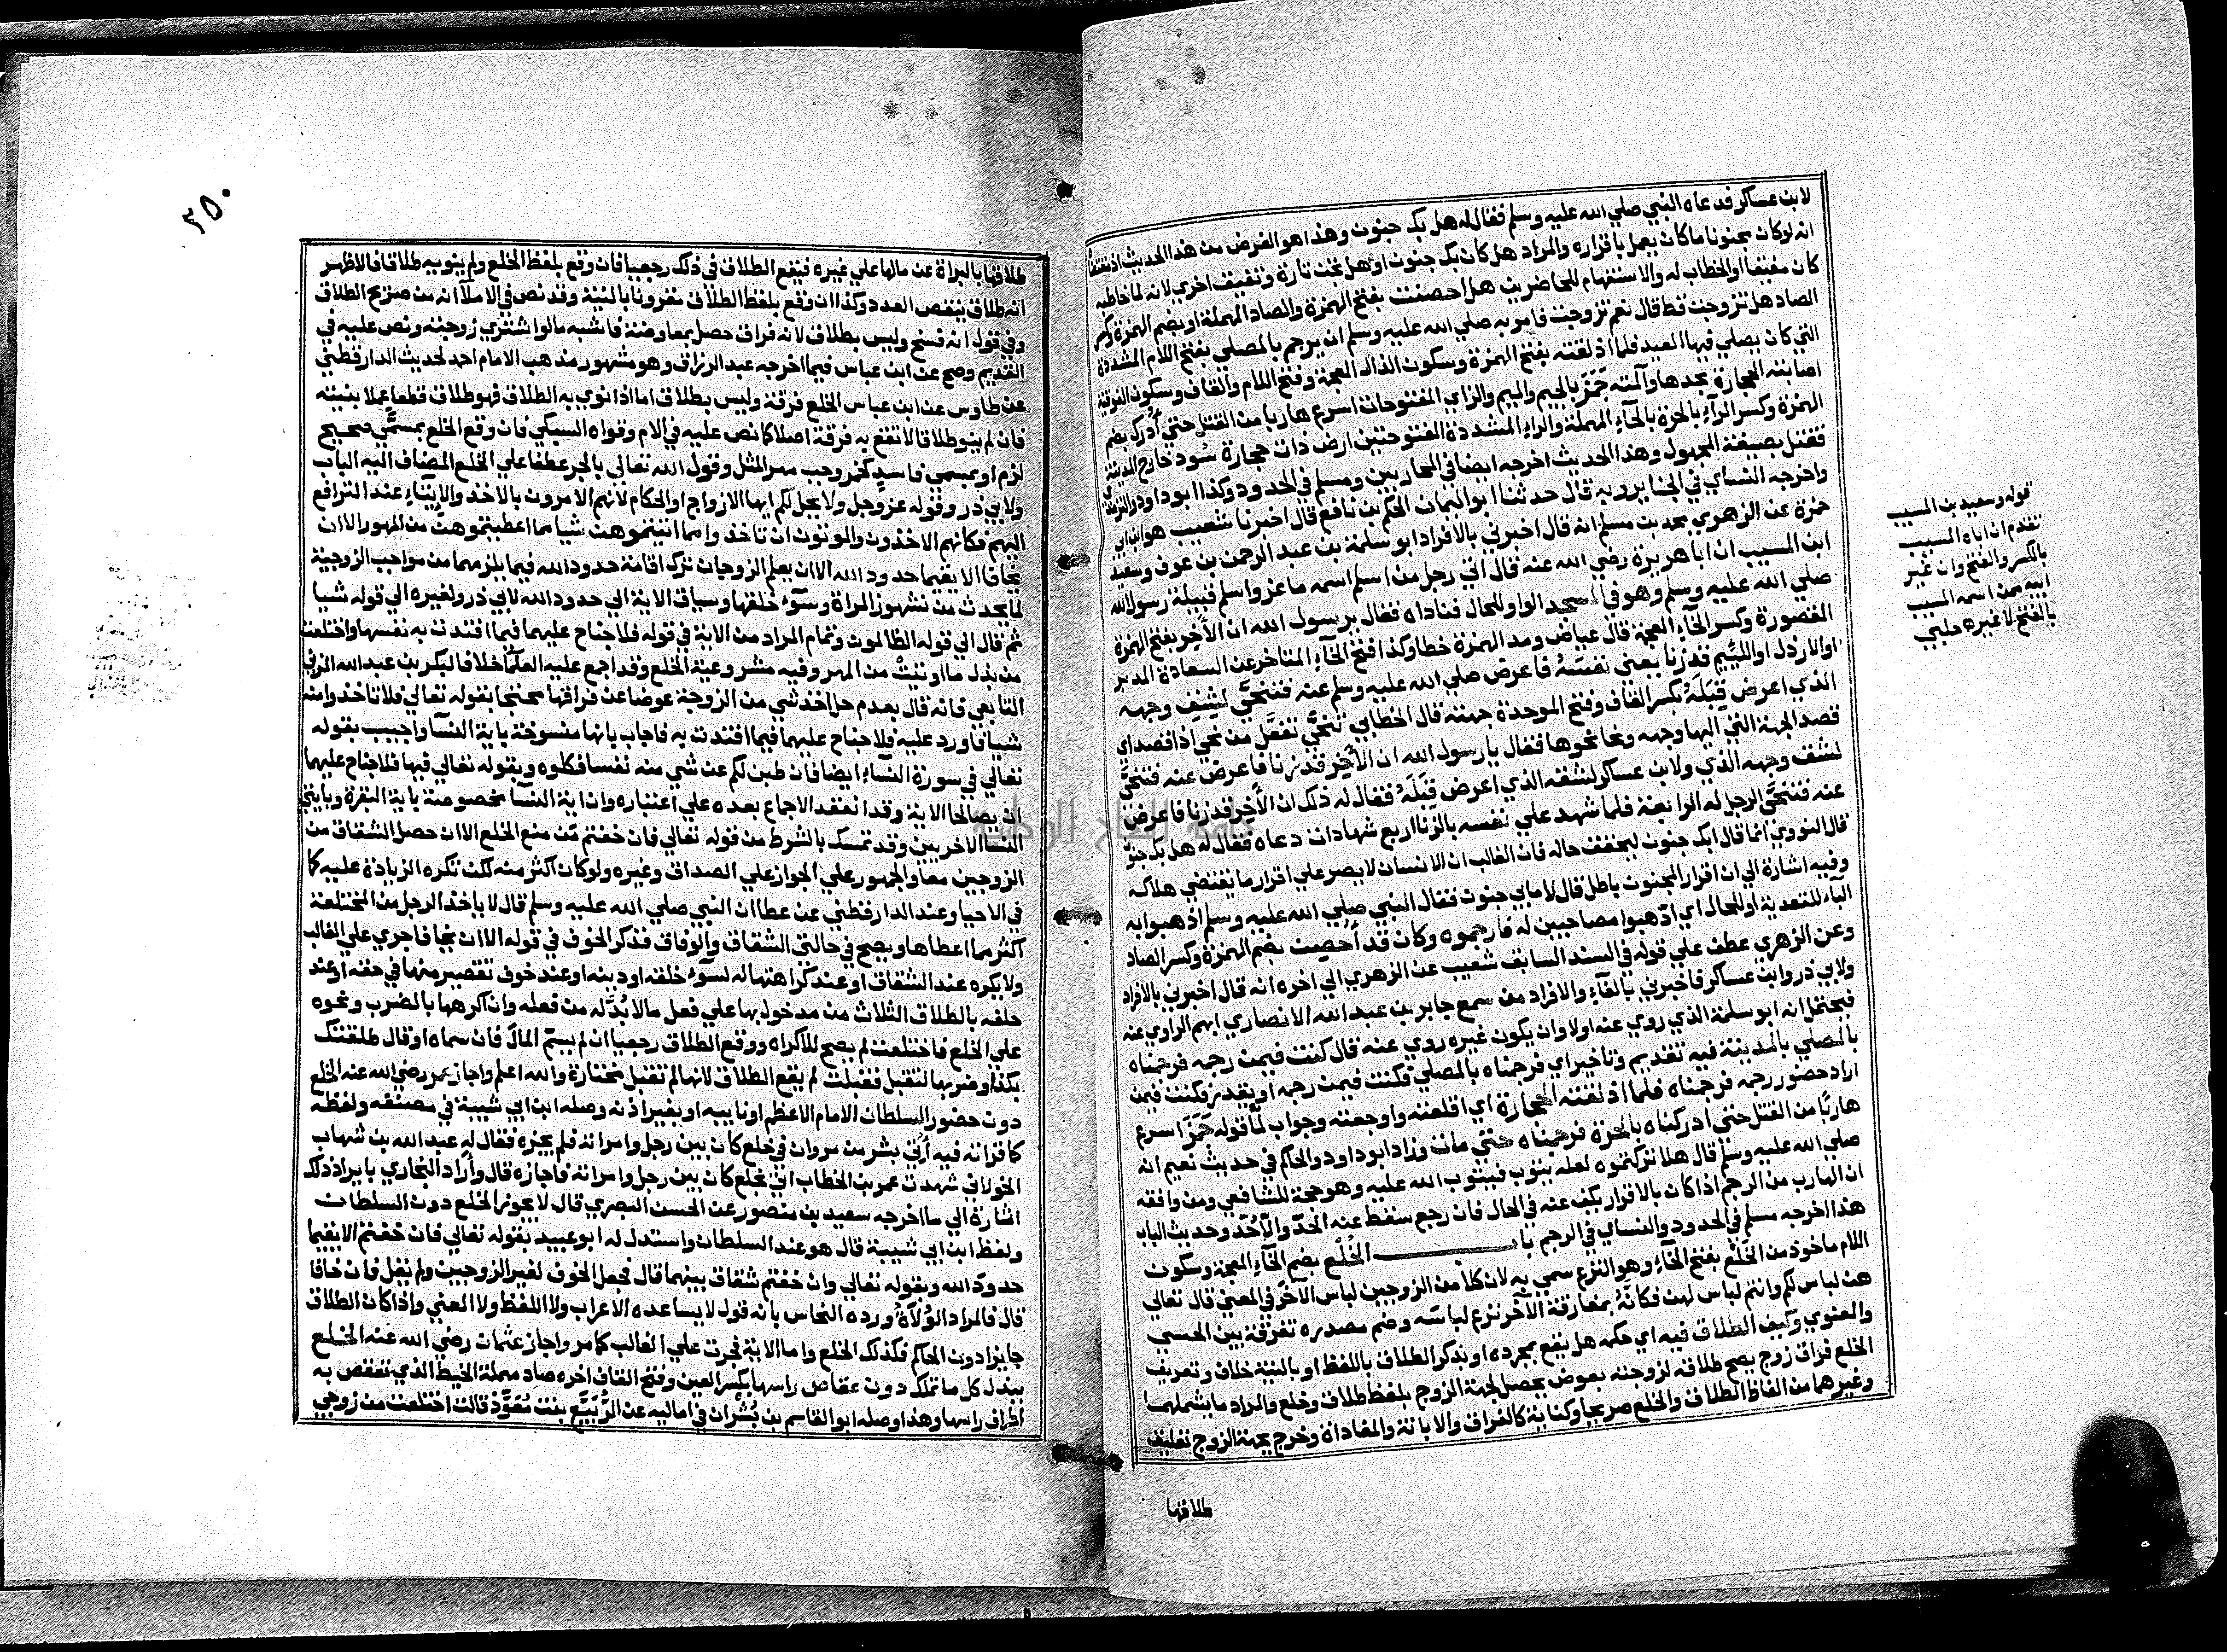 لابن عساكر فدعاه النبي صلي الله عليه وسلم فقال له هل بك جنون وهذا هو الغرض من هذا الحديث اذ مقتضاه
انه لو كان مجنونا ما كان يعمل باقراره والمراد هل كان بك جنون او هل تجن تارة وتفيق اخري لانه لما خاطبه
كان مفيقا او الخطاب له والاستفهام للحاضرين هل احصنت بفتح الهمزة والصاد المهملة او بضم الهمزة وكسر
الصاد هل تزوجت قط قال نعم تزوجت فامر به صلي الله عليه وسلم ان يرجم بالمصلي بفتح اللام المشددة
التي كان يصلي فيها العيد فلما اذلقته بفتح الهمزة وسكون الذال المعجمة وفتح اللام والقاف وسكون الفوقية
اصابته الحجارة بحدها وآلمته جَمَزَ بالجيم والميم والزاي المفتوحات اسرع هاربا من القتل حتي أُدرك بضم
الهمزة وكسر الرآء بالحرة بالحآء المهملة والراء المشددة المفتوحتين ارض ذات حجارة سُود خارج المدينة
فقتل بصيغة المجهول وهذا الحديث اخرجه ايضا في المحاربين ومسلم في الحدود وكذا ابو داود والترمذي
واخرجه النساي في الجنايز وبه قال حدثنا ابو اليمان الحكم بن نافع قال اخبرنا شعيب هو ابن ابي
حمزة عن الزهري محمد بن مسلم انه قال اخبرني بالافراد ابو سلمة بن عبد الرحمن بن عوف وسعيد
ابن المسيب ان ابا هريرة رضي الله عنه قال اتي رجل من اسلم اسمه ماعز واسلم قبيلة رسول الله
صلي الله عليه وسلم وهو في المسجد الواو للحال فناداه فقال يرسول الله ان الأَخِر بفتح الهمزة
المقصورة وكسر الخآء المعجمة قال عياض ومد الهمزة خطا وكذا فتح الخآء المتاخر عن السعادة المدبر
او الارذل او اللئيم قد زنا يعني نفسه فاعرض صلي الله عليه وسلم عنه فتنحَّي لشِقِّ وجهه
الذي اعرض قِبَلَهُ بكسر القاف وفتح الموحدة جهته قال الخطابي تنحَّي تفعَّل من نحي اذا قصد اي
قصد الجهة التي اليها وجهه ونحا نحوها فقال يا رسول الله ان الأَخِر قد زنا فاعرض عنه فتنحَّي
لشق وجهه الذي ولابن عساكر لشقه الذي اعرض قِبَلَهُ فقال له ذلك ان الأَخِر قد زنا فاعرض
عنه فتنحَّي الرجل له الرابعة فلما شهد علي نفسه بالزنا اربع شهادات دعاه فقال له هل بك جنون
قال النووي انما قال ابك جنون ليحقق حاله فان الغالب ان الانسان لا يصر علي اقرار ما يقتضي هلاكه
وفيه اشارة الي ان اقرار المجنون باطل قال لا ما بي جنون فقال النبي صلي الله عليه وسلم اذهبوا به
الباء للتعدية او للحال اي اذهبوا مصاحبين له فارجموه وكان قد اُحصِن بضم الهمزة وكسر الصاد
وعن الزهري عطف علي قوله في السند السابق شعيب عن الزهري الي اخره انه قال اخبرني بالافراد
ولابي ذر وابن عساكر فاخبرني بالفآء والافراد من سمع جابر بن عبد الله الانصاري ابهم الراوي عنه
فيحتمل انه ابو سلمة الذي روي عنه اولا وان يكون غيره روي عنه قال كنت فيمن رجمه فرجمناه
بالمصلي بالمدينة فيه تقديم وتاخير اي فرجمناه بالمصلي فكنت فيمن رجمه او يقدر فكنت فيمن
اراد حضور رجمه فرجمناه فلما اذلقته الحجارة اي اقلقته واوجعته وجواب لمَّا قوله جَمَزَ اسرع
هاربًا من القتل حتي ادركناه بالحرة فرجمناه حتي مات وزاد ابو داود والحاكم في حديث نعيم انه
صلي الله عليه وسلم قال هلا تركتموه لعله يتوب فيتوب الله عليه وهو حجة للشافعي ومن وافقه
ان الهارب من الرجم اذا كان بالاقرار يكف عنه في الحال فان رجع سقط عنه الحدّ والّا حُدّ وحديث الباب
هذا اخرجه مسلم في الحدود والنساي في الرجم باب الخُلْع بضم الخآء المعجمة وسكون
اللام ماخوذ من الخَلْع بفتح الخآء وهو النزع سمي به لان كلا من الزوجين لباس الآخر في المعني قال تعالي
هن لباس لكم وانتم لباس لهن فكانّهُ بمفارقة الآخر نزع لباسه وضم مصدره تفرقة بين الحسي
والمعنوي وكيف الطلاق فيه اي حكمه هل يقع بمجرده او بذكر الطلاق باللفظ او بالنية خلاف وتعريف
الخلع فراق زوج يصح طلاقه لزوجته بعوض يحصل لجهة الزوج بلفظ طلاق وخلع والمراد ما يشملهما
وغيرهما من الفاظ الطلاق والخلع صريحا وكناية كالفراق والابانة والمفاداة وخرج بجهة الزوج تعليق
طلاقها
قوله وسعيد بن المسيب
تقدم ان اباه المسيب
بالكسر والفتح وان غير
ابيه ممن اسمه المسيب
بالفتح لا غيره حلبي
٢٥٠
طلاقها بالبراة عن مالها علي غيره فيقع الطلاق في ذلك رجعيا فان وقع بلفظ الخلع ولم ينو به طلاقا فالاظهر
انه طلاق ينقص العدد وكذا ان وقع بلفظ الطلاق مقرونا بالنية وقد نص في الاملآ انه من صرايح الطلاق
وفي قول انه فسخ وليس بطلاق لانه فراق حصل بمعاوضة فاشبه ما لو اشتري زوجته ونص عليه في
القديم وصح عن ابن عباس فيما اخرجه عبد الرزاق وهو مشهور مذهب الامام احمد لحديث الدارقطني
عن طاوس عن ابن عباس الخلع فرقة وليس بطلاق اما اذا نوي به الطلاق فهو طلاق قطعا عملا بنيته
فان لم ينو طلاقا لا تقع به فرقة اصلا كما نص عليه في الام وقواه السبكي فان وقع الخلع بمسمًّي صحيح
لزم او بمسمي فاسدٍ كخمر وجب مهر المثل وقول الله تعالي بالجر عطفا علي الخلع المضاف اليه الباب
ولابي ذر وقوله عز وجل ولا يحل لكم ايها الازواج او الحكام لانهم الامرون بالاخذ والايتآء عند الترافع
اليهم فكانهم الاخذون والموتون ان تاخذوا مما اتيتموهن شيا مما اعطيتموهن من المهور الا ان
يخافا الا يقيما حدود الله الا ان يعلم الزوجان ترك اقامة حدود الله فيما يلزمهما من مواجب الزوجية
لما يحدث من نشوز المراة وسوء خلقها وسياق الاية الي حدود الله لابي ذر ولغيره الي قوله شيا
ثم قال الي قوله الظالمون وتمام المراد من الاية في قوله فلا جناح عليهما فيما افتدت به نفسها واختلعت
من بذل ما اوتيت من المهر وفيه مشروعية الخلع وقد اجمع عليه العلمآ خلافا لبكر بن عبد الله المزني
التابعي فانه قال بعدم حل اخذ شي من الزوجة عوضا عن فراقها محتجا بقوله تعالي فلا تاخذوا منه
شيا فاورد عليه فلا جناح عليهما فيما افتدت به فاجاب بانها منسوخة باية النسآ واجيب بقوله
تعالي في سورة النسآء ايضا فان طبن لكم عن شي منه نفسا فكلوه وبقوله تعالي فيها فلا جناح عليهما
ان يصالحا الاية وقد انعقد الاجماع بعده علي اعتباره وان اية النسآ مخصوصة باية البقرة وبايتي
النسآ الاخريين وقد تمسك بالشرط من قوله تعالي فان خفتم من منع الخلع الا ان حصل الشقاق من
الزوجين معا والجمهور علي الجواز علي الصداق وغيره ولو كان اكثر منه لكن تكره الزيادة عليه كما
في الاحيا وعند الدارقطني عن عطا ان النبي صلي الله عليه وسلم قال لا ياخذ الرجل من المختلعة
اكثر مما اعطاها ويصح في حالتي الشقاق والوفاق فذكر الخوف في قوله الا ان يخافا جري علي الغالب
ولا يكره عند الشقاق او عند كراهتها له لسوء خلقه او دينه او عند خوف تقصير منها في حقه او عند
حلفه بالطلاق الثلاث من مدخول بها علي فعل ما لا بُدَّ له من فعله وان اكرهها بالضرب ونحوه
علي الخلع فاختلعت لم يصح للاكراه ووقع الطلاق رجعيا ان لم يسمّ المال فان سماه او قال طلقتك
بكذا وضربها لتقبل فقبلت لم يقع الطلاق لانها لم تقبل مختارة والله اعلم واجاز عمر رضي الله عنه الخلع
دون حضور السلطان الامام الاعظم او نايبه او بغير اذنه وصله ابن ابي شيبة في مصنفه ولفظه
كما قراته فيه أُتي بشر من مروان في خلع كان بين رجل وامراته فلم يجزه فقال له عبد الله بن شهاب
الخولاني شهدت عمر بن الخطاب اتي بخلع كان بين رجل وامراته فاجازه قال وأراد البخاري بايراد ذلك
اشارة الي ما اخرجه سعيد بن منصور عن الحسن البصري قال لا يجوز الخلع دون السلطان
ولفظ ابن ابي شيبة قال هو عند السلطان واستدل له ابو عبيد بقوله تعالي فان خفتم الا يقيما
حدود الله وبقوله تعالي وان خفتم شقاق بينهما قال فجعل الخوف لغير الزوجين ولم يقل فان خافا
قال فالمراد الوُلاةُ ورده النحاس بانه قول لا يساعده الاعراب ولا اللفظ ولا المعني واذا كان الطلاق
جايزا دون الحاكم فكذلك الخلع واما الاية فجرت علي الغالب كما مر واجاز عثمان رضي الله عنه الخلع
ببذل كل ما تملك دون عقاص راسها بكسر العين وفتح القاف اخره صاد مهملة الخيط الذي تعقص به
اطراف راسها وهذا وصله ابو القاسم بن بُشْران في اماليه عن الرُّبَيِّع بنت مُعَوِّذ قالت اختلعت من زوجي